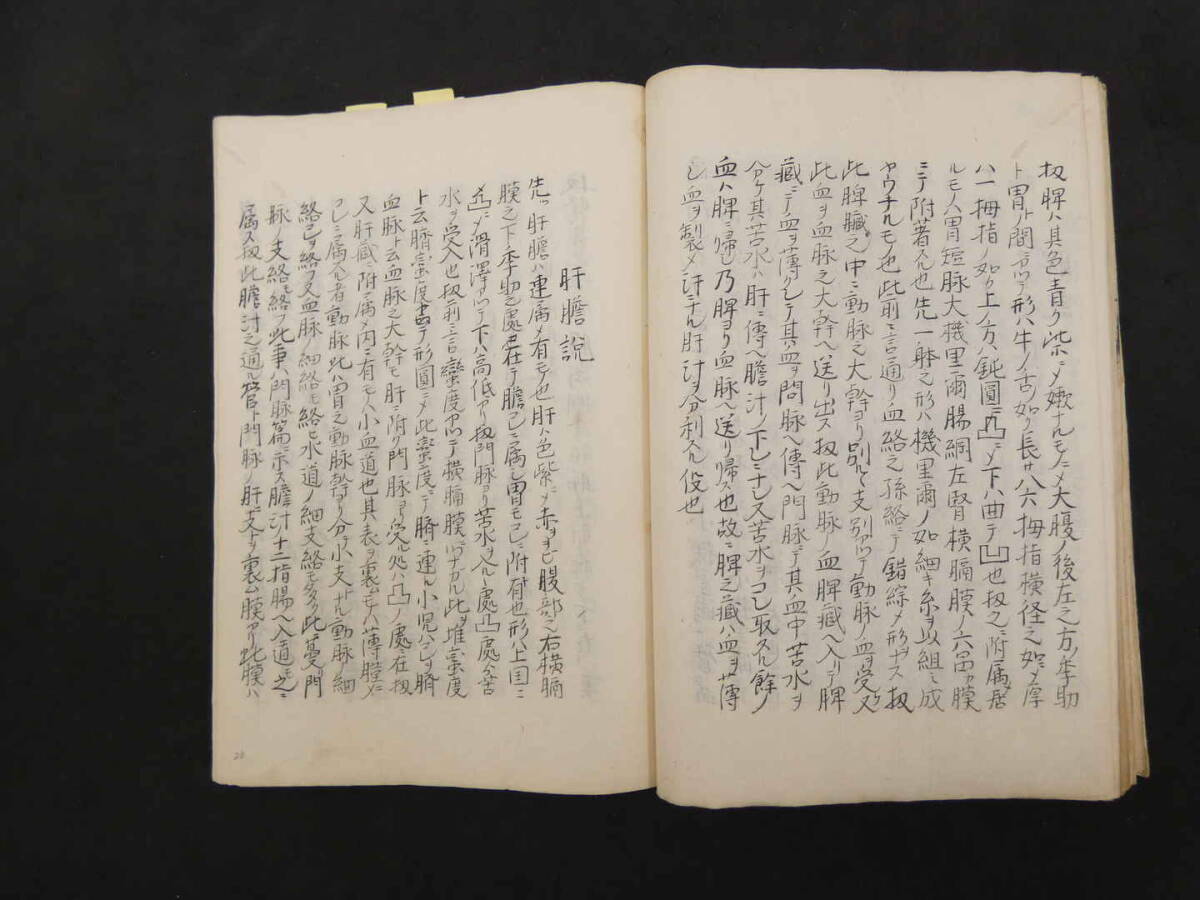 扨脾ハ其色青ク紫ニメ嫩ナルモノニメ大腹ノ後左之方ノ季肋
ト胃トノ間ニ在テ形ハ牛ノ舌ノ如ク長サハ六拇指横径之如ニメ厚
ハ一拇指ノ如ク上ノ方ハ鈍圓ニ凸ニメ下ハ曲テ凹也扨之ニ附属メ居
ルモノハ胃短脉大機里爾腸網左腎横膈膜ノ六ツ留ル膜
ニテ附着スル也先一躰之形ハ機里爾ノ如細キ糸ヲ以組ミ成
ヤウナルモノ也此前ニ言通リ血絡之孫絡ニテ錯綜メ形ヲナス扨
此脾臓之中ニ動脉之大幹ヨリ別レテ支別アツテ動脉ノ血ヲ受又
此血ヲ血脉之大幹ヘ送リ出ス扨此動脉ノ血脾蔵ヘ入リテ脾
蔵ニテ血ヲ薄クシテ其血ヲ問脉ヘ傳ヘ門脉ニテ其血中苦水ヲ
分ケ其苦水ハ肝ニ傳ヘ膽汁ノ下シニナシ又苦水ヲコシ取スル餘ノ
血ハ脾ニ帰シ乃脾ヨリ血脉ヘ送リ帰ス也故ニ脾之蔵ハ血ヲ薄
シ血ヲ製メ汁ニナル肝汁ヲ分利スル役也
肝膽説
先ツ肝膽ハ連属メ有モノ也肝ハ色紫ニメ赤ヲヲビ腹部之右横膈
膜之下季肋之處ニ在テ膽コレニ属シ胃モコレニ附有也形ハ上圓ニ
凸ニテ滑澤アツテ下ハ高低アリ扨門脉ヨリ苦水ヲ入ルヽ處凸處ハ苦
水ヲ受入也扨前ニ言蛮度アツテ横膈膜ニツナガル此ヲ堆蛮度
ト云臍蛮度ナルアリ形圓ニメ此蛮度ニテ臍ニ連ル小児ハコレヨリ臍
血脉ト云血脉之大幹モ肝ニ附ク門脉ヨリ受ル処ハ凸ノ處ニ在扨
又肝蔵ニ附テ属メ内ニ有モノハ小血道也其表ヲ裏ムモノハ薄膜ニメ
コレニ属スル者動脉此ハ胃之動脉幹ヨリ分ル小支ナル動脉ノ細
絡コレヲ絡フ又血脉ノ細絡モ絡ヒ水道ノ細支絡モ多ク此蔓リ門
脉ノ支絡モ絡フ此事ハ門脉篇ニ示ス膽汁十二指腸ヘ入道モ之ニ
属ス扨此膽汁之通ル管ト門脉ノ肝ニ支トヲ裏ム膜アリ此膜ハ
20